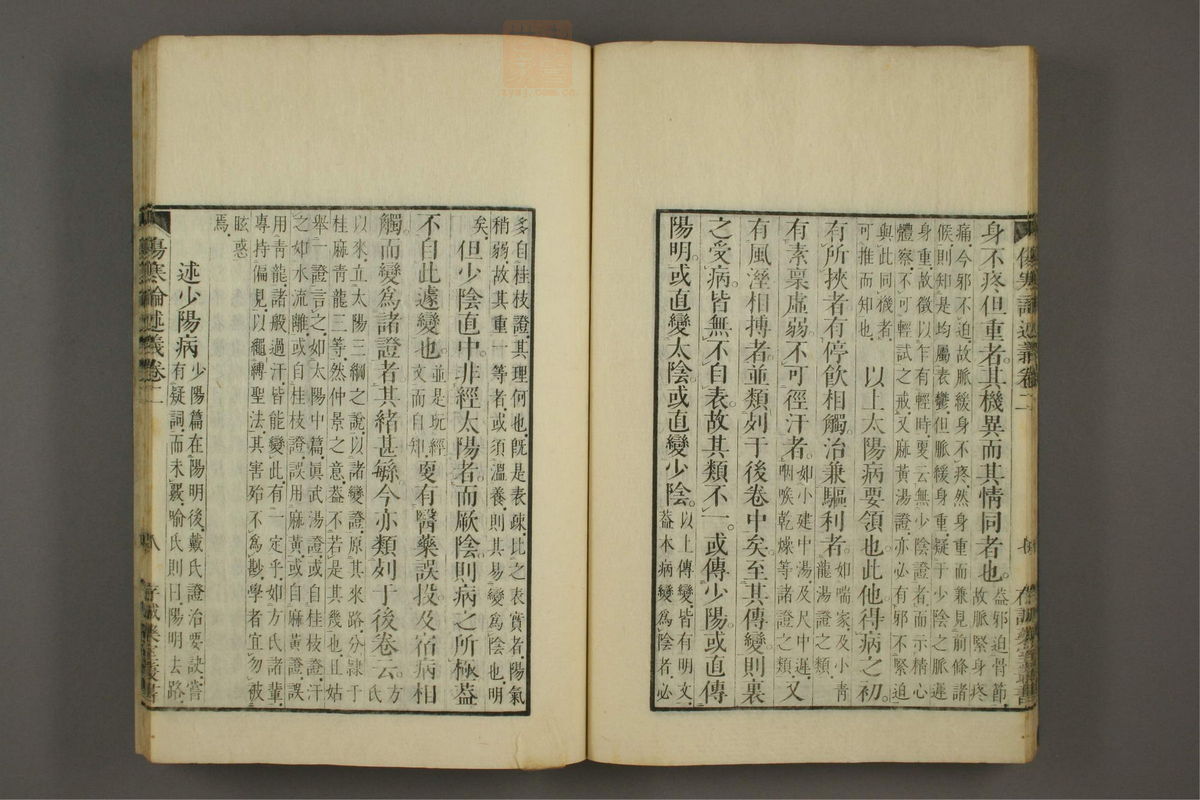 身不疼但重者其機異而其情同者也。蓋邪迫骨節、故脈緊身疼
痛、今邪不迫、故脈緩身不疼、然身重而兼見前條諸
候、則知是均屬表鬱、但脈緩身重、疑于少陰之脈遲
身重、故徵以乍有輕時、要云無少陰證者、而示精心
體察、不可輕試之戒、又麻黃湯證、亦必有邪不緊迫
與此同機者、可推而知也、以上太陽病要領也。此他得病之初。
有所挾者、有停飲相觸。治兼驅利者。如喘家及小青龍湯證之類、
有素稟虛弱、不可徑汗者。如小建中湯、及尺中遲、咽喉乾燥等諸證之類、又
有風溼相搏者。並類列于後卷中矣。至其傳變則裏
之受病。皆無不自表。故其類不一。或傳少陽。或直傳
陽明。或直變太陰。或直變少陰。以上傳變、皆有明文、蓋本病變為陰者、必
多自桂枝證、其理何也、既是表疎、比之表實者、陽氣
稍弱、故其重一等者、或須溫養、則其易變為陰也、明
矣、但少陰直中。非經太陽者。而厥陰則病之所極。蓋
不自此遽變也。並是玩經文而自知、更有醫藥誤投。及宿病相
觸。而變為諸證者。其緒甚緐。今亦類列于後卷云。方氏
以來、立太陽三綱之說、以諸變證、原其來路、分隸于
桂麻青龍三等、然仲景之意、蓋不若是其幾也、且姑
舉一證言之、如太陽中篇、真武湯證、或自桂枝證、汗
之如水流離、或自桂枝證、誤用麻黃、或自麻黃證、誤
用青龍、諸般過汗、皆能變此、有一定乎、如方氏諸輩、
專持偏見、以繩縛聖法、其害殆不為尠、學者宜勿被
眩惑
焉、
述少陽病 少陽篇在陽明後、戴氏證治要訣、嘗有疑詞、而未覈、喻氏則曰、陽明去路、
傷寒論述義卷二
八
存誠藥室叢書